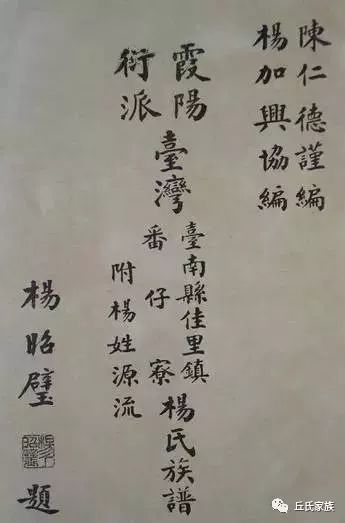 陳仁德謹編
楊加興協編
霞陽
衍派
臺灣
臺南縣佳里鎮
番仔寮
楊氏族譜
附楊姓源流
楊昭璧題
丘氏家族